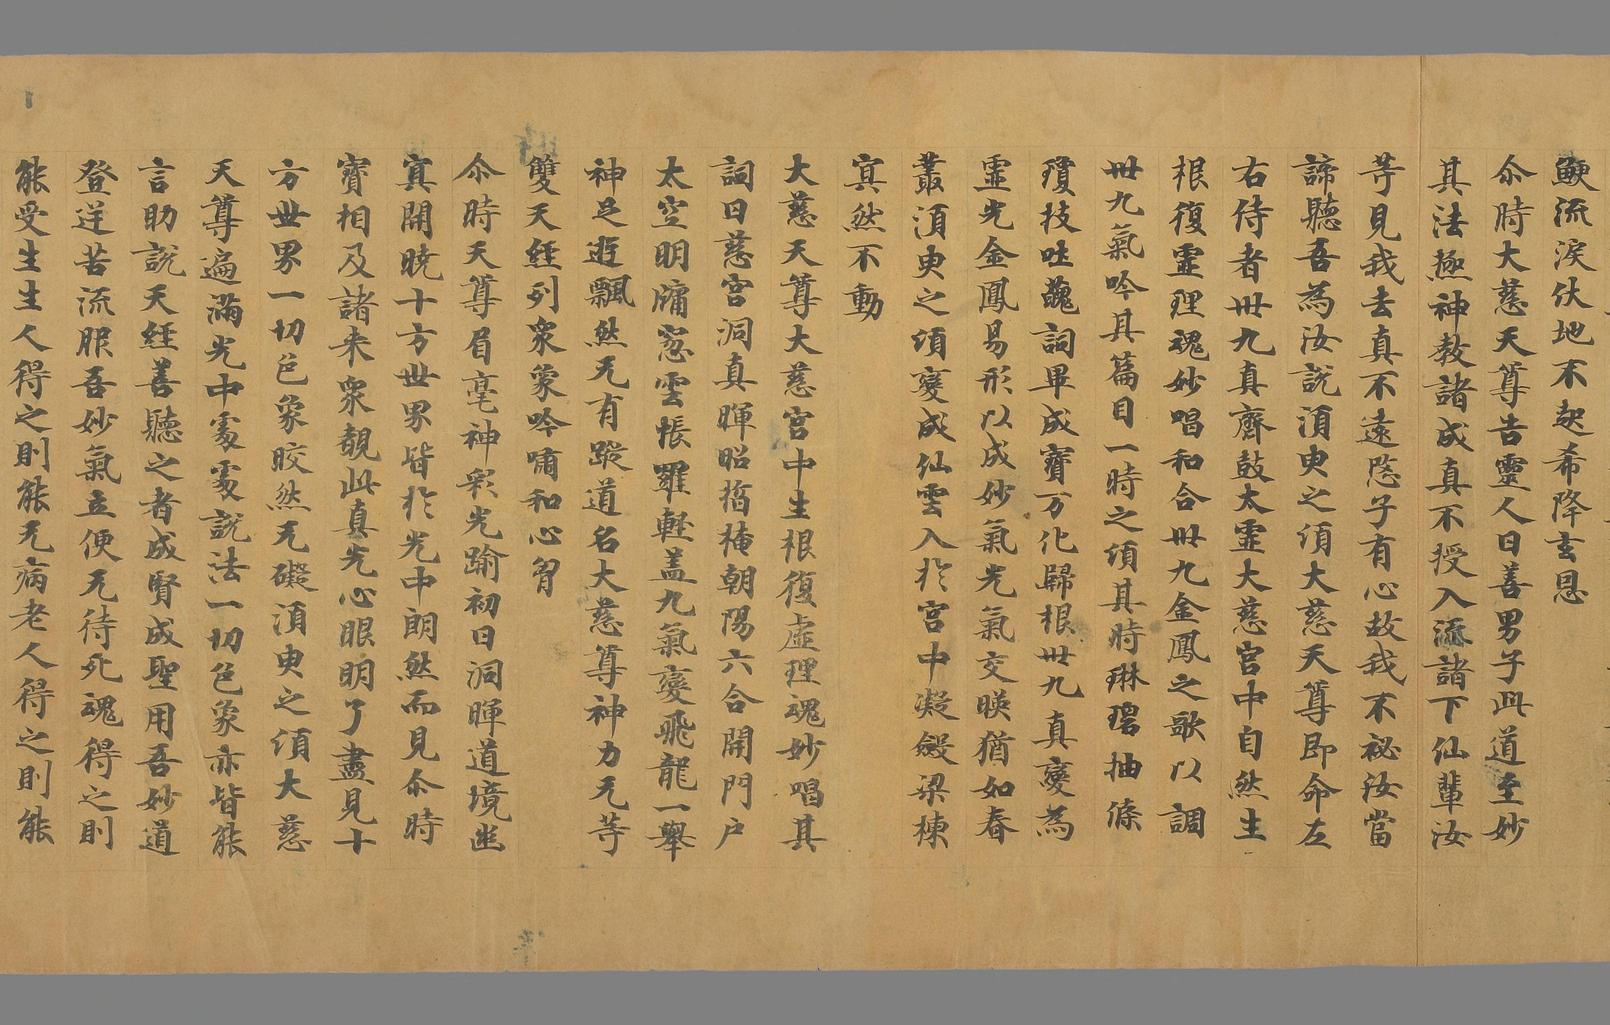 鯁流淚伏地不起希降玄恩
尒時大慈天尊告靈人曰善男子此道至妙
其法極神教諸成真不授入添諸下仙輩汝
等見我去真不遠愍子有心故我不祕汝當
諦聽吾為汝說湏臾之須大慈天尊即命左
右侍者卅九真齊鼓太靈大慈宮中自然生
根復靈理魂妙唱和合卅九金鳳之歌以調
卅九氣吟其篇目一時之須其時琳琅抽條
瓊技吐醜詞畢成寶万化歸根卅九真變為
靈光金鳳易形以成妙氣光氣交暎猶如春
叢湏臾之須變成仙雲入於宮中凝殿梁棟
寘然不動
大慈天尊大慈宮中生根復虛理魂妙唱其
詞曰慈宮洞真暉昭揞掩朝陽六合開門戶
太空明牗窓雲帳羅軽盖九氣變飛龍一舉
神足遊飄然无有蹤道名大慈尊神力无等
雙天經列衆象吟嘯和心胷
尒時天尊眉毫神彩光踰初日洞暉道境幽
寘開曉十方世界皆於光中朗然而見尒時
寶相及諸来衆覩此真光心眼明了盡見十
方世界一切色象晈然无礙湏臾之須大慈
天尊遍滿光中䖏䖏說法一切色象亦皆能
言助說天經善聽之者成賢成聖用吾妙道
登逆苦流服吾妙氣立便无待死魂得之則
能受生生人得之則能无病老人得之則能